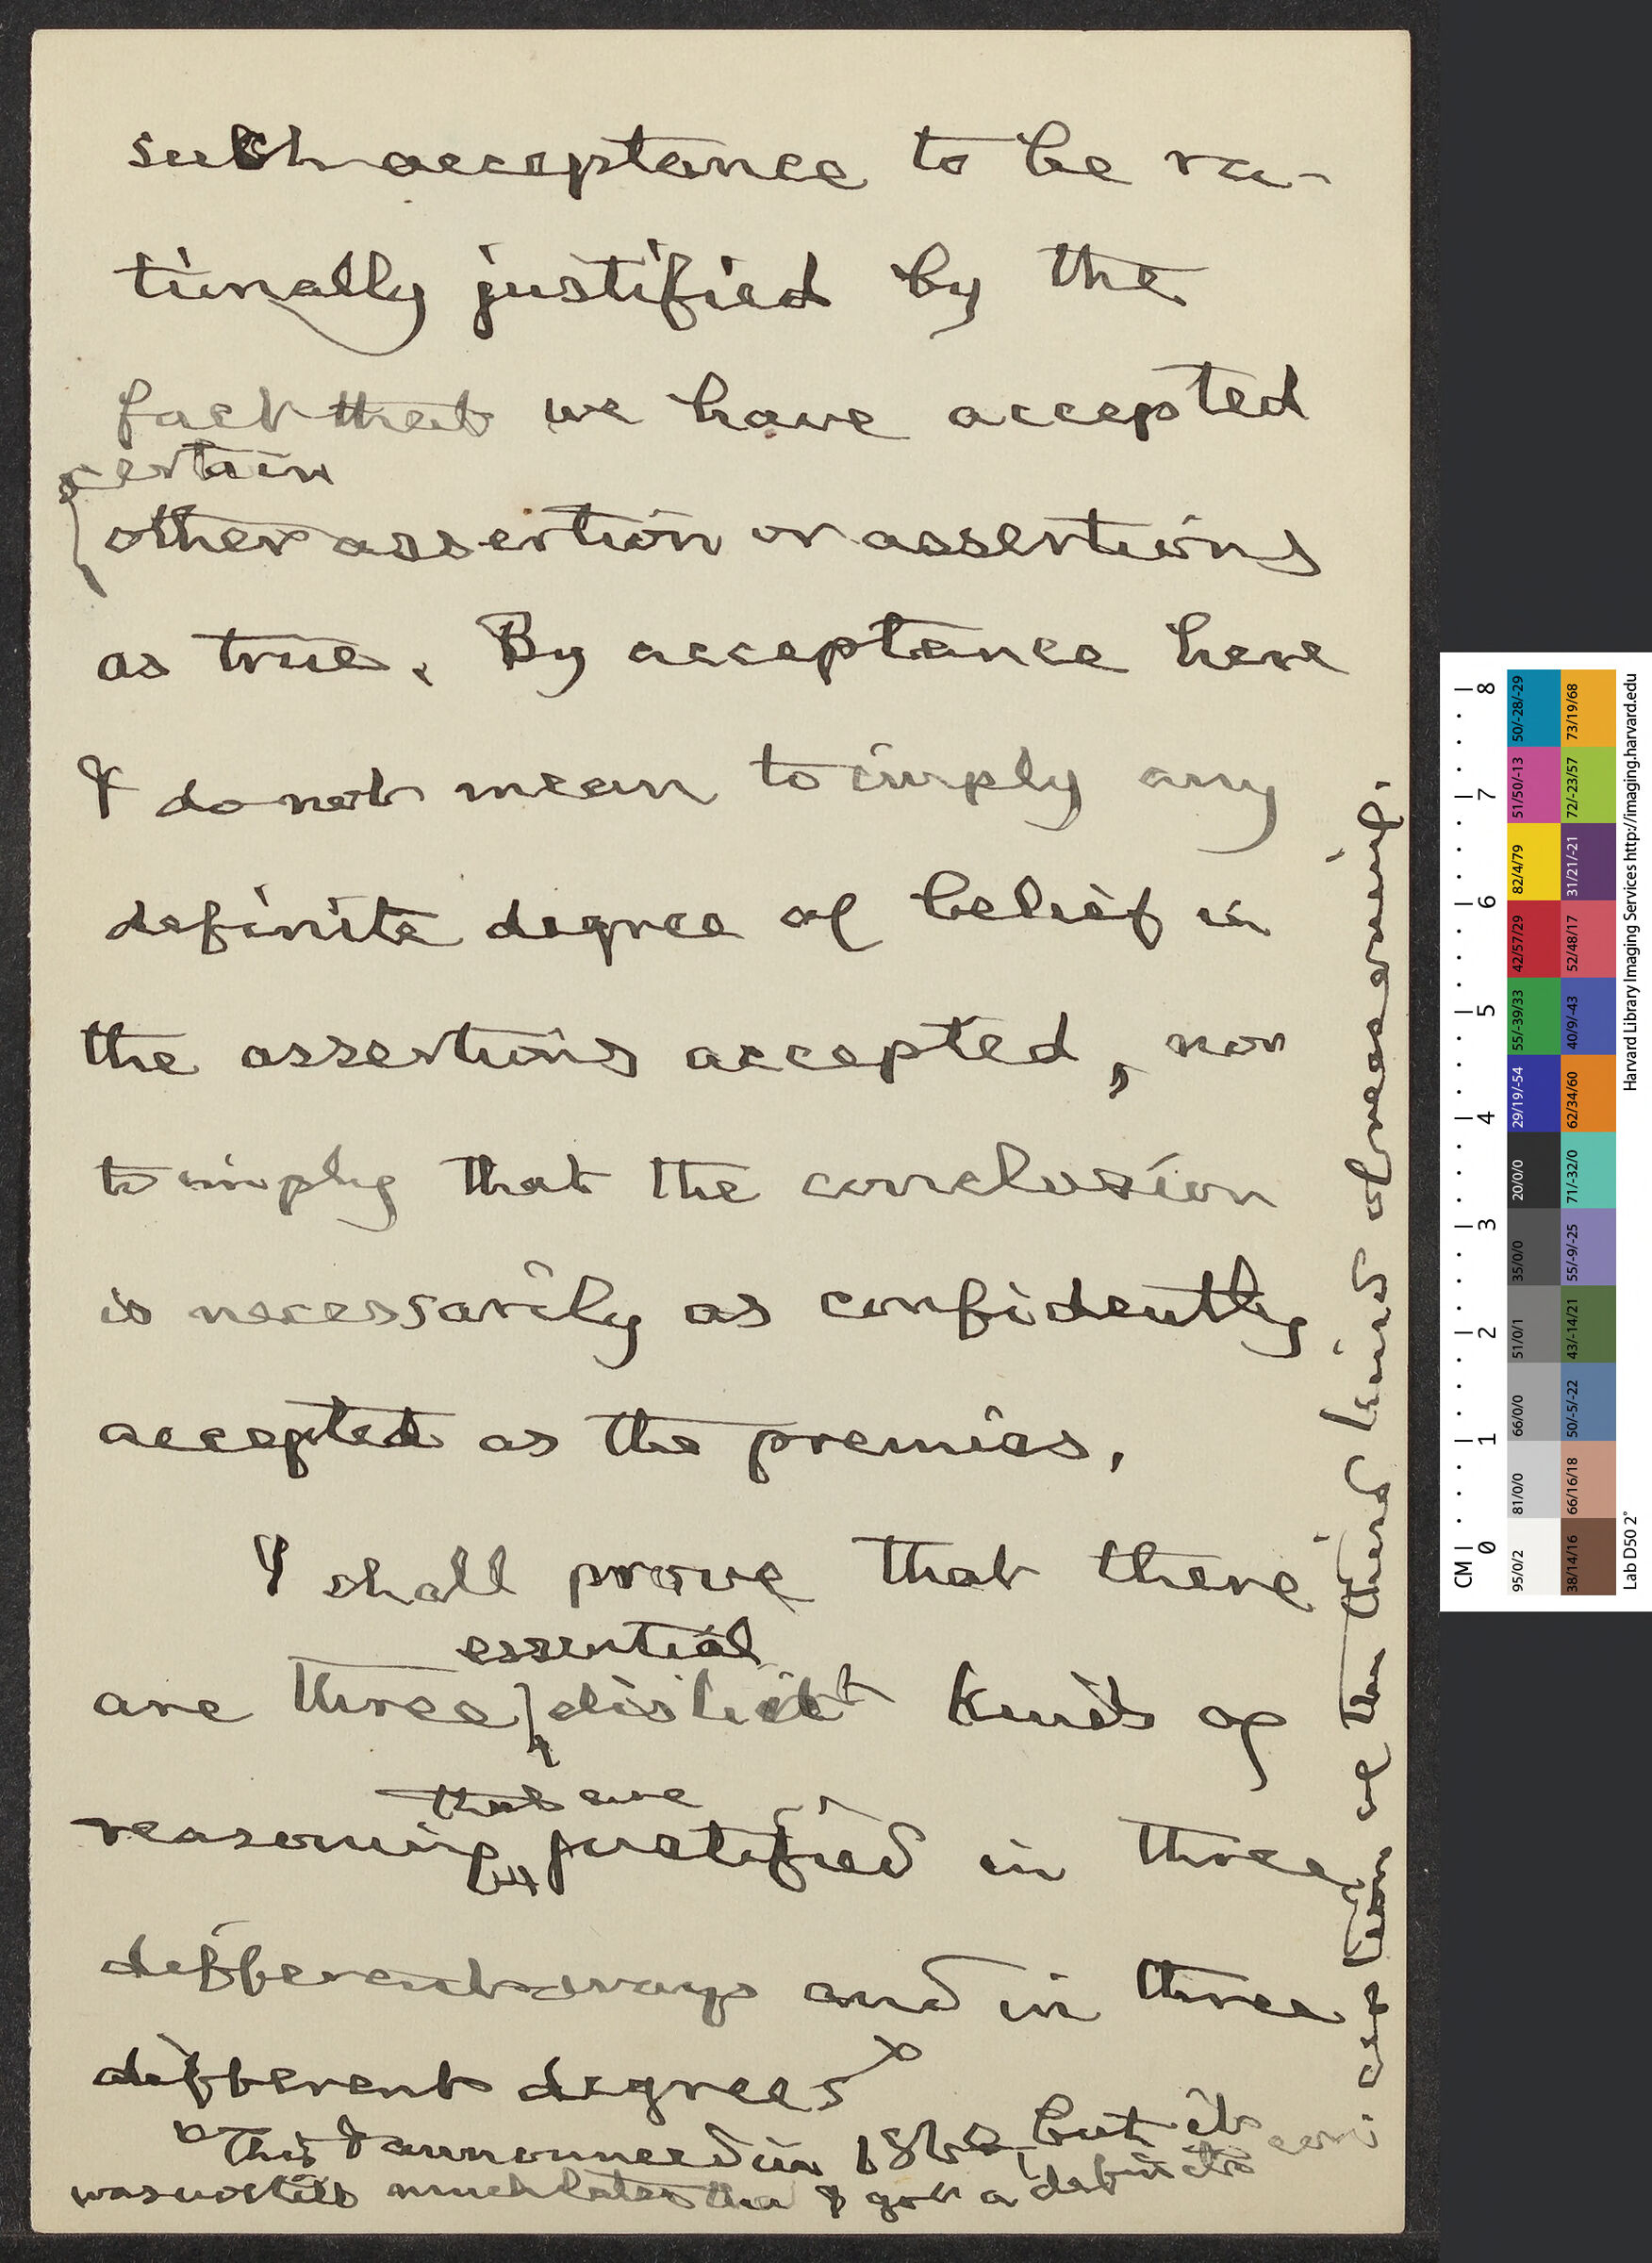 such acceptance to be ra-
tionally justified by the
fact that we have accepted
certain
other assertion or assertions
as true. By acceptance here
I do not mean to imply any
definite degree of belief in
the assertions accepted, nor
to imply that the conclusion
is necessarily as confidently
accepted as the premiss.
I shall prove that there
essential
are three distinct kinds of
that are
reasoning justified in three
different ways and in three
different degrees
This I announced in but it
was not till much later that I got a definite
conception of the third kind of reasoning.
CM 0 1 2 3 4 5 6 7 8
95/0/2 81/0/0 66/0/0 51/0/1 35/0/0 20/0/0 29/19/-54 55/-39/33 42/57/29 82/4/79 51/50/-13 50/-28/-29
38/14/16 66/16/18 50/-5/-22 43/-14/21 55/-9/-25 71/-32/0 62/34/60 40/9/-43 52/48/17 31/21/-21 72/-23/57 73/19/68
Lab D50 2° Harvard Library Imaging Services http://imaging.harvard.edu